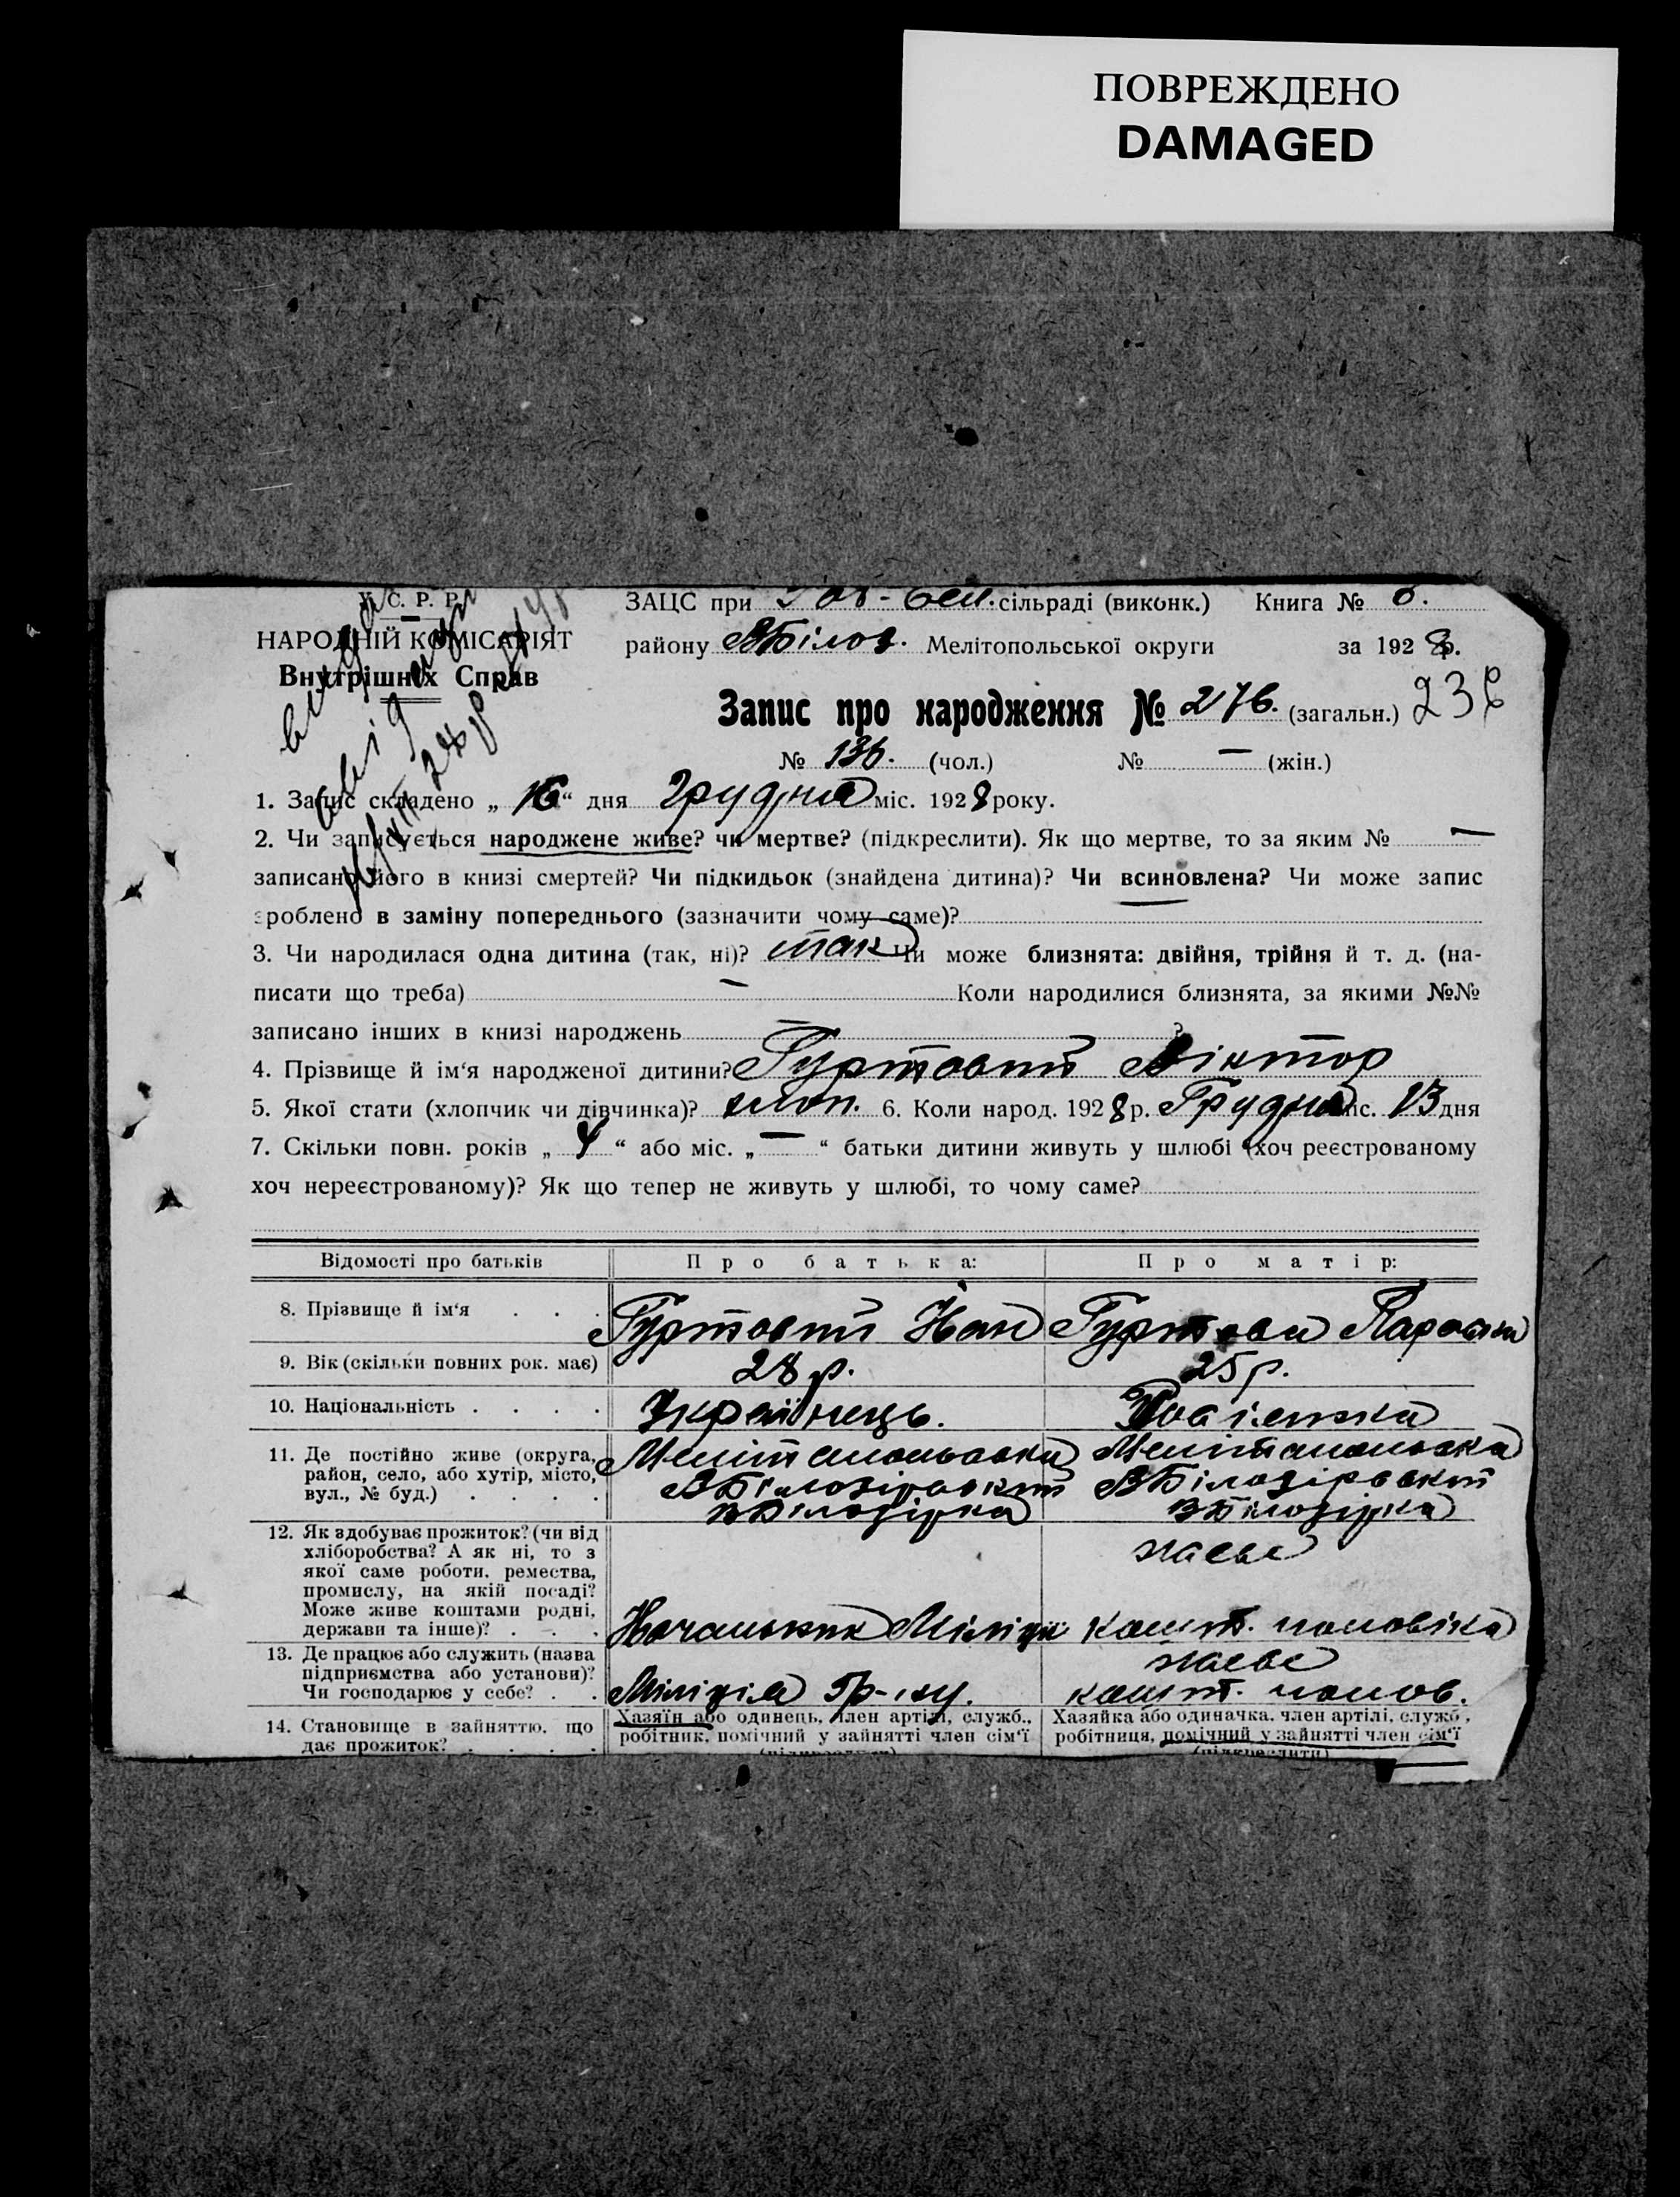 ПОВРЕЖДЕНО
DAMAGED
У. С. Р. Р.
НАРОДНІЙ КОМІСАРІЯТ
Внутрішніх Справ
ЗАЦС при сільраді (виконк.) Книга № 6.
району ВБілоз. Мелітопольської округи за 1928 р.
Запис про народження № 276. (загальн.) 236
№ 136. (чол.) № — (жін.)
1. Запис складено „ 16 “ дня Грудня міс. 1928 року.
2. Чи записується народжене живе? чи мертве? (підкреслити). Як що мертве, то за яким № —
записано його в книзі смертей? Чи підкидьок (знайдена дитина)? Чи всиновлена? Чи може запис
зроблено в заміну попереднього (зазначити чому саме)?
3. Чи народилася одна дитина (так, ні)? так Чи може близнята: двійня, трійня й т. д. (на-
писати що треба) — Коли народилися близнята, за якими №№
записано інших в книзі народжень — ?
4. Прізвище й ім‘я народженої дитини? Гуртовий Віктор
5. Якої стати (хлопчик чи дівчинка)? хлоп. 6. Коли народ. 1928 р. Грудня міс. 13 дня
7. Скільки повн. років „ 4 “ або міс. „ — “ батьки дитини живуть у шлюбі (хоч реєстрованому
хоч нереєстрованому)? Як що тепер не живуть у шлюбі, то чому саме?
Відомості про батьків Про батька: Про матір:
8. Прізвище й ім‘я . . . Гуртовий Іван Гуртова
9. Вік (скільки повних рок. має) 28 р. 25 р.
10. Національність . . . . Українець.
11. Де постійно живе (округа, район, село, або хутір, місто, вул., № буд.) . . . .
Мелітопольська Мелітопольська
ВБілозірський ВБілозірський
ВБілозірка ВБілозірка
12. Як здобуває прожиток? (чи від
хліборобства? А як ні, то з
якої саме роботи, ремества,
промислу, на якій посаді?
Може живе коштами родні,
держави та інше)? . . .
Начальник Міліції
на кошт. чоловіка
13. Де працює або служить (назва
підприємства або установи)?
Чи господарює у себе? . .
Міліція
кошт. чолов.
14. Становище в зайняттю, що
дає прожиток? . . . .
Хазяїн або одинець, член артілі, служб.,
робітник, помічний у зайнятті член сім‘ї
(підкреслити)
Хазяйка або одиначка, член артілі, служб.,
робітниця, помічний у зайнятті член сім‘ї
(підкреслити)